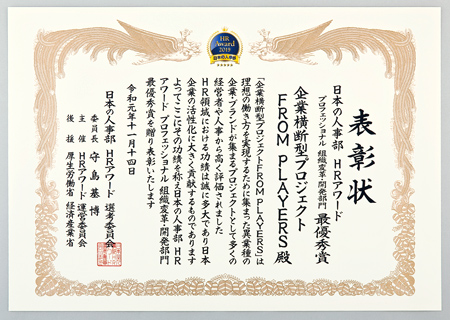 HR
Award
2019
日本の人事部
表彰状
日本の人事部 HRアワード
プロフェッショナル 組織変革・開発部門 最優秀賞
企業横断型プロジェクト
FROM PLAYERS 殿
「企業横断型プロジェクトFROM PLAYERS」は
理想の働き方を実現するために集まった異業種の
企業・ブランドが集まるプロジェクトとして多くの
経営者や人事から高く評価されました
HR領域における功績は誠に多大であり日本
企業の活性化に大きく貢献するものであります
よってここにその功績を称え日本の人事部 HR
アワード プロフェッショナル 組織変革・開発部門
最優秀賞を贈り表彰いたします
令和元年十一月十四日
日本の人事部 HRアワード 選考委員会
委員長 守島基博
主催 HRアワード 運営委員会
後援 厚生労働省 経済産業省